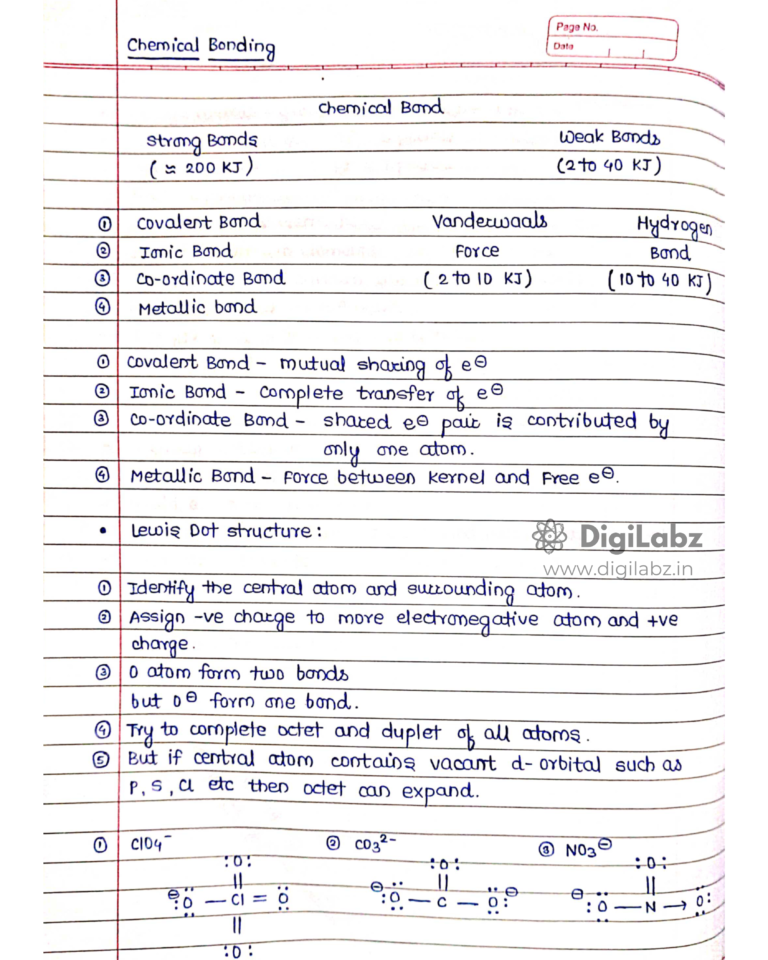 Page No.
Date
Chemical Bonding
Chemical Bond
Strong Bonds
Weak Bonds
(≈ 200 KJ)
(2 to 40 KJ)
① Covalent Bond
Vanderwaals
Hydrogen
② Ionic Bond
Force
Bond
③ Co-ordinate Bond
(2 to 10 KJ)
(10 to 40 KJ)
④ Metallic bond
① Covalent Bond - mutual sharing of e⊖
② Ionic Bond - Complete transfer of e⊖
③ Co-ordinate Bond - shared e⊖ pair is contributed by
only one atom.
④ Metallic Bond - Force between Kernel and Free e⊖.
• Lewis Dot structure :
DigiLabz
www.digilabz.in
① Identify the central atom and surrounding atom.
② Assign -ve charge to more electronegative atom and +ve
charge.
③ O atom form two bonds
but O⊖ form one bond.
④ Try to complete octet and duplet of all atoms.
⑤ But if central atom contains vacant d-orbital such as
P, S, Cl etc then octet can expand.
① ClO4⁻ ② CO3²⁻ ③ NO3⊖
:O: :O: :O:
|| || ||
⊖:O — Cl = O ⊖:O — C — O:⊖ ⊖:O — N → O:
||
:O: